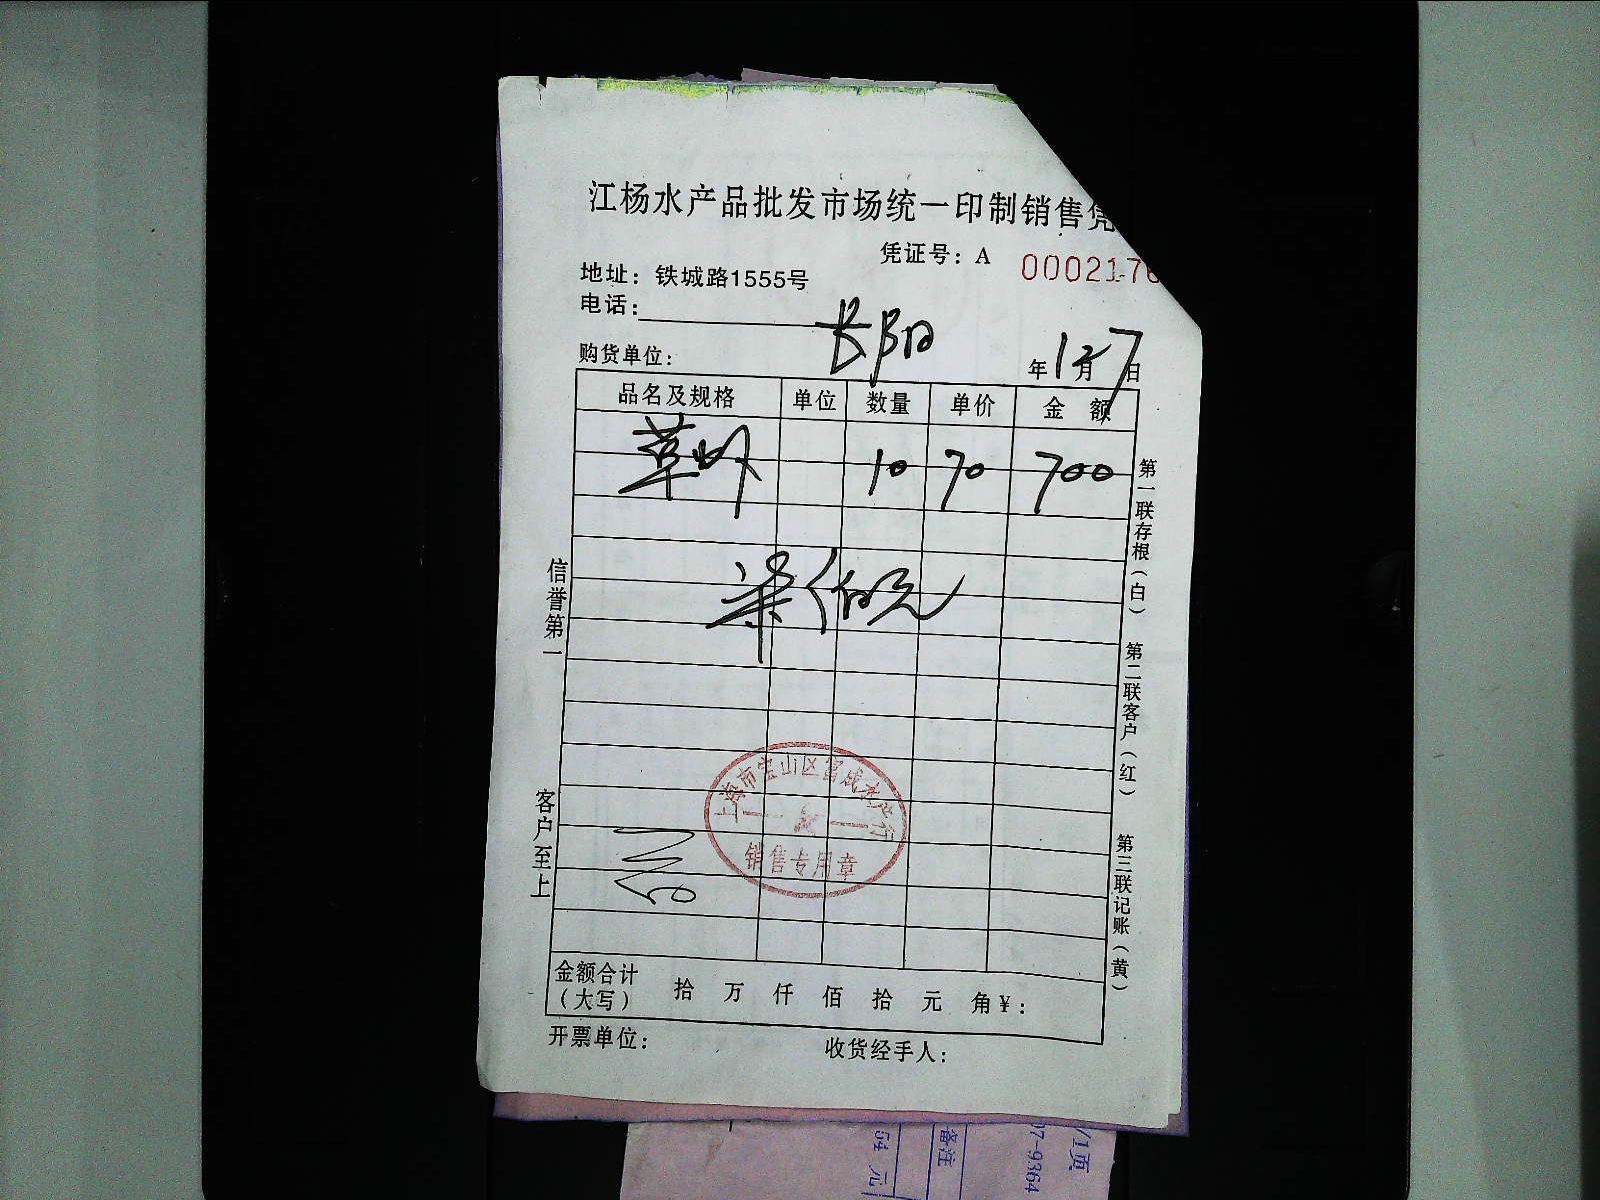 江杨水产品批发市场统一印制销售凭
凭证号：A 0002176
地址：铁城路1555号
电话：
长阳
购货单位： 年12月7日
品名及规格 单位 数量 单价 金额
草虾 10 70 700
柒佰元
上海市宝山区富成水产行
销售专用章
金额合计
（大写） 拾 万 仟 佰 拾 元 角￥：
开票单位： 收货经手人：
信誉第一
客户至上
第一联存根（白）
第二联客户（红）
第三联记账（黄）
/1页
07-9364
备注
54 元